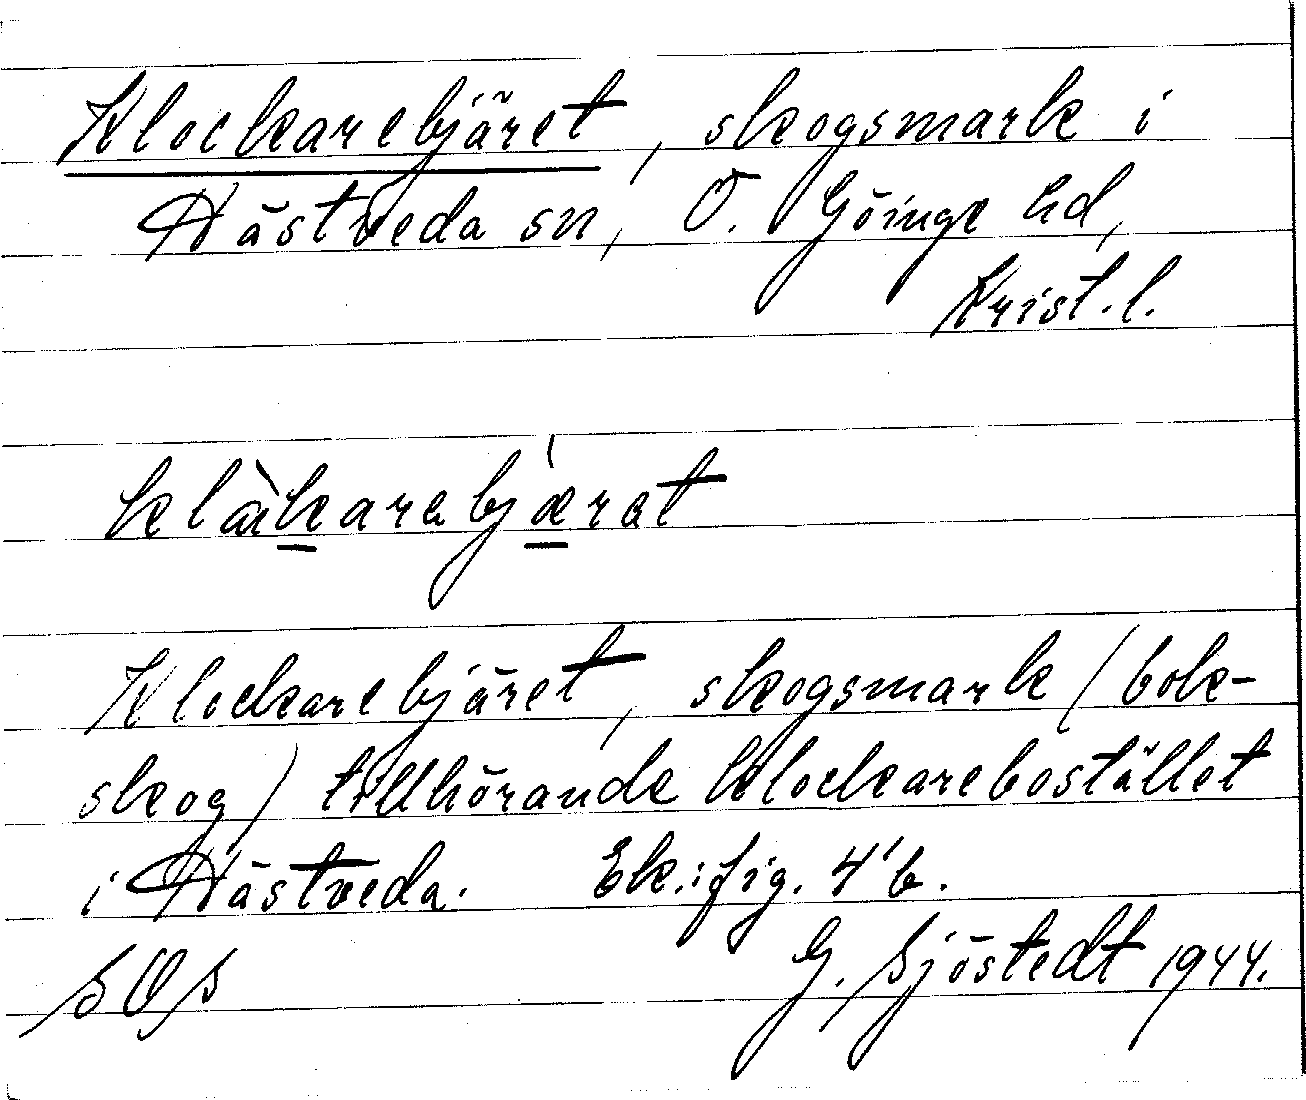 Klockarebjäret, skogsmark i
Hästveda sn, Ö. Göinge hd,
Krist. l.
klåkarabjærat
Klockarebjäret, skogsmark (bok-
skog) tillhörande klockarebostället
i Hästveda. Ek. i fig. 4'b.
SOS G. Sjöstedt 1944.